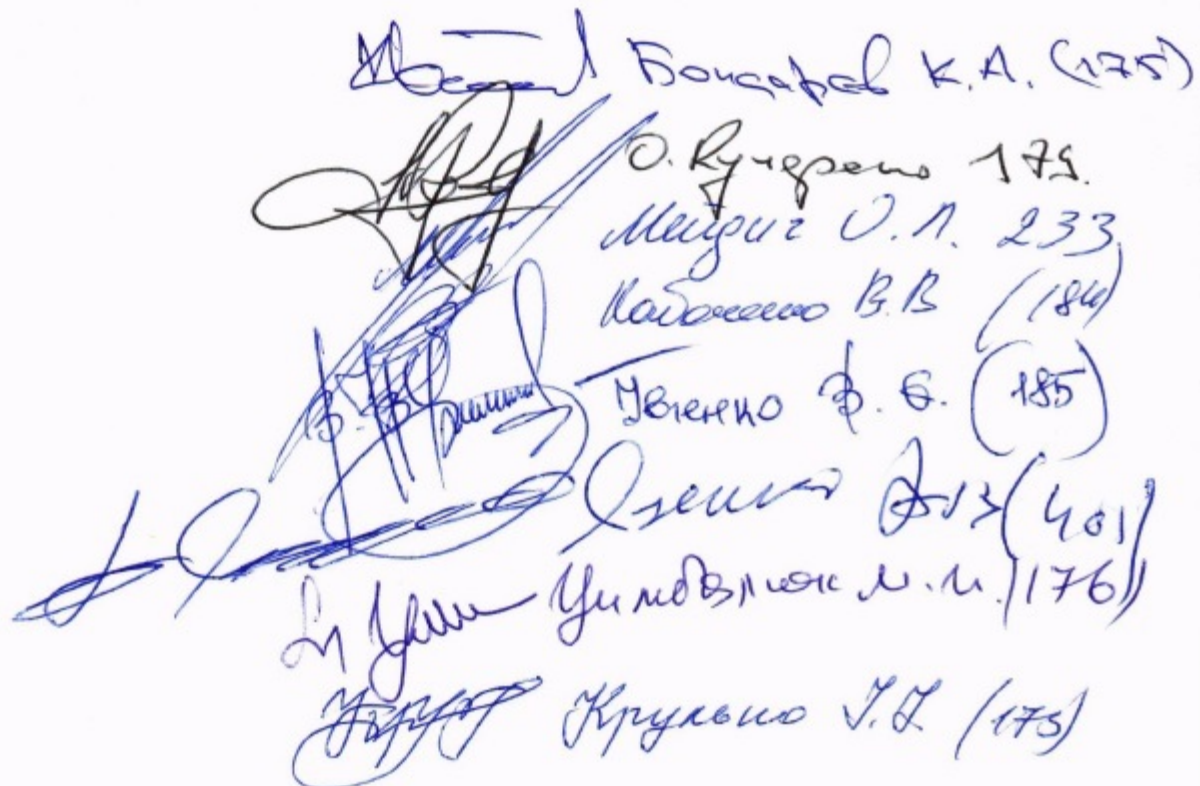 Бондарєв К.А. (175)
О. Кучеренко 179.
О.Л. 233
Кабаченко В.В (184)
Івченко В. Є. (185)
(401)
Цимбалюк М.М. (176)
Крулько І.І. (175)